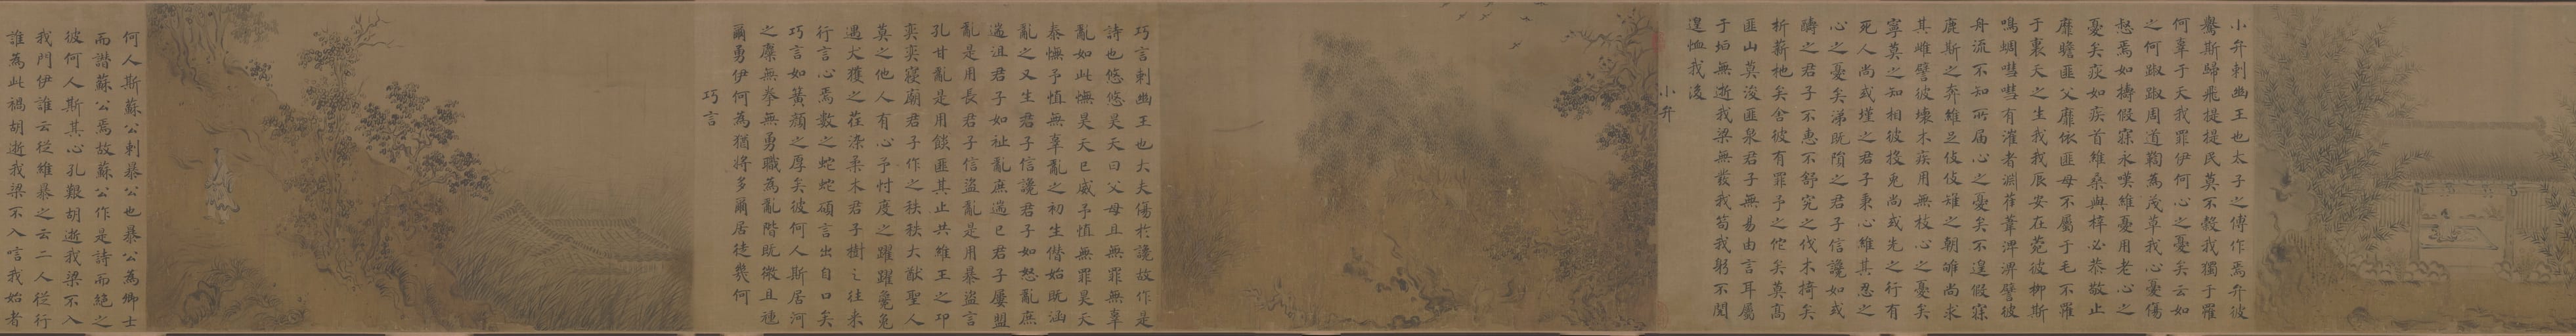 小弁刺幽王也太子之傅作焉弁彼
鸒斯歸飛提提民莫不穀我獨于罹
何辜于天我罪伊何心之憂矣云如
之何踧踧周道鞫為茂草我心憂傷
惄焉如擣假寐永嘆維憂用老心之
憂矣疢如疾首維桑與梓必恭敬止
靡瞻匪父靡依匪母不屬于毛不罹
于裏天之生我我辰安在菀彼柳斯
鳴蜩嘒嘒有漼者淵萑葦淠淠譬彼
舟流不知所届心之憂矣不遑假寐
鹿斯之奔維足伎伎雉之朝雊尚求
其雌譬彼壞木疾用無枝心之憂矣
寧莫之知相彼投兔尚或先之行有
死人尚或墐之君子秉心維其忍之
心之憂矣涕既隕之君子信讒如或
醻之君子不惠不舒究之伐木掎矣
析薪杝矣舍彼有罪予之佗矣莫高
匪山莫浚匪泉君子無易由言耳屬
于垣無逝我梁無發我笱我躬不閱
遑恤我後
小弁
巧言刺幽王也大夫傷於讒故作是
詩也悠悠昊天曰父母且無罪無辜
亂如此憮昊天已威予慎無罪昊天
泰憮予慎無辜亂之初生僭始既涵
亂之又生君子信讒君子如怒亂庶
遄沮君子如祉亂庶遄已君子屢盟
亂是用長君子信盜亂是用暴盜言
孔甘亂是用餤匪其止共維王之邛
奕奕寢廟君子作之秩秩大猷聖人
莫之他人有心予忖度之躍躍毚兔
遇犬獲之荏染柔木君子樹之往來
行言心焉數之蛇蛇碩言出自口矣
巧言如簧顏之厚矣彼何人斯居河
之麋無拳無勇職為亂階既微且尰
爾勇伊何為猶將多爾居徒幾何
巧言
何人斯蘇公刺暴公也暴公為卿士
而譖蘇公焉故蘇公作是詩而絕之
彼何人斯其心孔艱胡逝我梁不入
我門伊誰云從維暴之云二人從行
誰為此禍胡逝我梁不入唁我始者